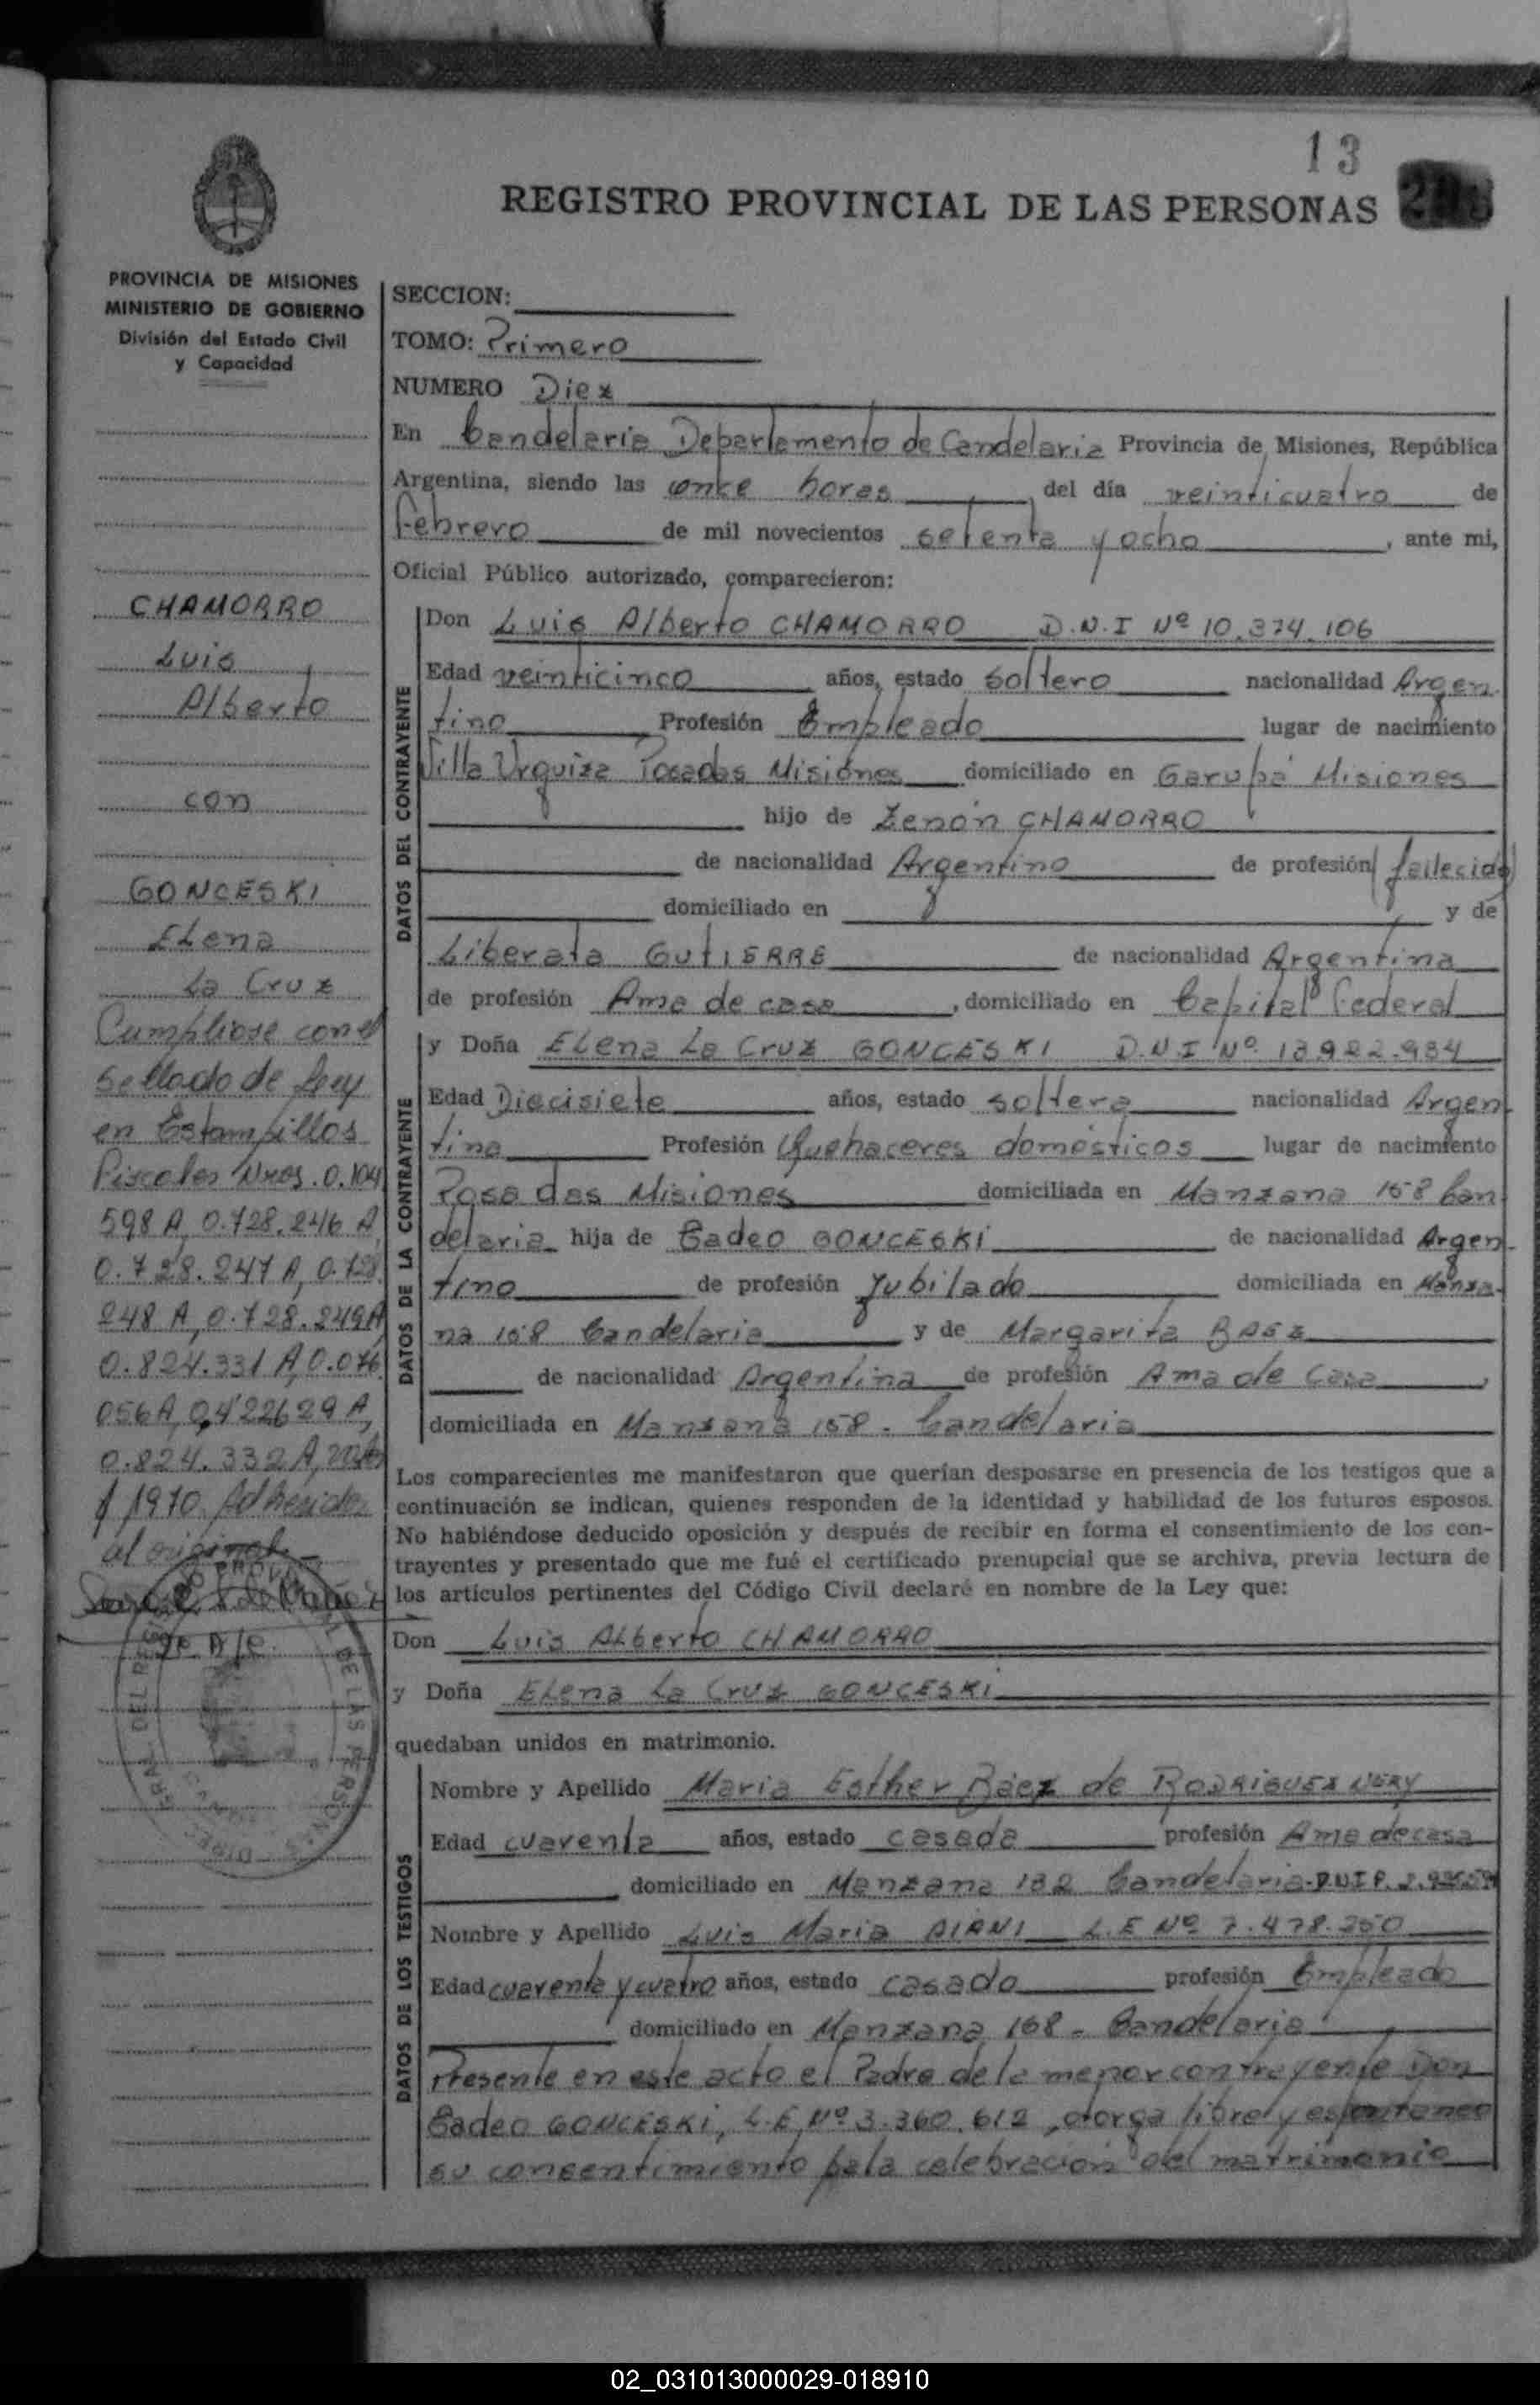 13
REGISTRO PROVINCIAL DE LAS PERSONAS
PROVINCIA DE MISIONES
MINISTERIO DE GOBIERNO
División del Estado Civil
y Capacidad
CHAMORRO
Luis
Alberto
con
GONCESKI
ELena
La Cruz
Cumpliose con el
sellado de Ley
en Estampillas
Fiscales Nros. 0.104
598 A, 0.728.246 A
0.728.247 A, 0.728
248 A, 0.728.249 A
0.824.331 A, 0.076
056A, 0,422629 A,
0.824.332 A,
$ 1970. Adherido
al original
SECCION:
TOMO: Primero
NUMERO Diez
En Candelaria Departamento de Candelaria Provincia de Misiones, República
Argentina, siendo las once horas, del día veinticuatro de
Febrero de mil novecientos setenta y ocho, ante mi,
Oficial Público autorizado, comparecieron:
DATOS DEL CONTRAYENTE
Don Luis Alberto CHAMORRO D.N.I Nº 10.374.106
Edad veinticinco años, estado soltero nacionalidad Argen-
tino Profesión Empleado lugar de nacimiento
Villa Urquiza Posadas Misiones domiciliado en Garupá Misiones
hijo de Zenón CHAMORRO
de nacionalidad Argentino de profesión (fallecido)
domiciliado en y de
Liberata GUTIERRE de nacionalidad Argentina
de profesión Ama de casa, domiciliado en Capital Federal
DATOS DE LA CONTRAYENTE
y Doña ELena La Cruz GONCESKI D.N.I Nº 13.922.934
Edad Diecisiete años, estado soltera nacionalidad Argen-
tina Profesión Quehaceres domésticos lugar de nacimiento
Posadas Misiones domiciliada en Manzana 158 Can
delaria hija de Tadeo GONCESKI de nacionalidad Argen-
tino de profesión Jubilado domiciliada en Manza-
na 158 Candelaria y de Margarita BAEZ
de nacionalidad Argentina de profesión Ama de Casa,
domiciliada en Manzana 158 - Candelaria
Los comparecientes me manifestaron que querían desposarse en presencia de los testigos que a
continuación se indican, quienes responden de la identidad y habilidad de los futuros esposos.
No habiéndose deducido oposición y después de recibir en forma el consentimiento de los con-
trayentes y presentado que me fué el certificado prenupcial que se archiva, previa lectura de
los artículos pertinentes del Código Civil declaré en nombre de la Ley que:
Don Luis ALberto CHAMORRO
y Doña ELena La Cruz GONCESKI
quedaban unidos en matrimonio.
DATOS DE LOS TESTIGOS
Nombre y Apellido Maria Esther Báez de RODRIGUEZ NERY
Edad cuarenta años, estado casada profesión Ama de casa
domiciliado en Manzana 132 Candelaria
Nombre y Apellido Luis Maria AIANI L.E Nº 7.478.250
Edad cuarenta y cuatro años, estado casado profesión Empleado
domiciliado en Manzana 168 - Candelaria
Presente en este acto el Padre de la menor contrayente Don
Tadeo GONCESKI, L.E, Nº 3.360.612, otorga libre y espontaneo
su consentimiento pala celebración del matrimonio
02_031013000029-018910